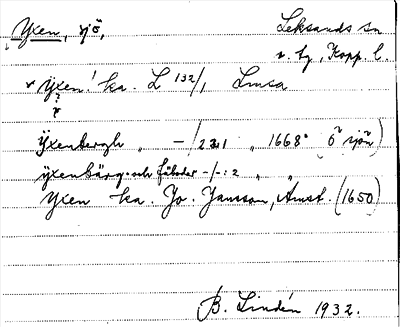 Yxen, sjö, Leksands sn
v. bg, Kopp. l.
v ÿxen! ka. L 132/1 Lmsa
? ?
Ÿxenbergh " —/23:1 " 1668 (ö sjön)
ÿxenbärg och fäboder -/-: 2 " "
Yxen ka. Jo. Jansson, Amst. (1650)
B. Lindén 1932.